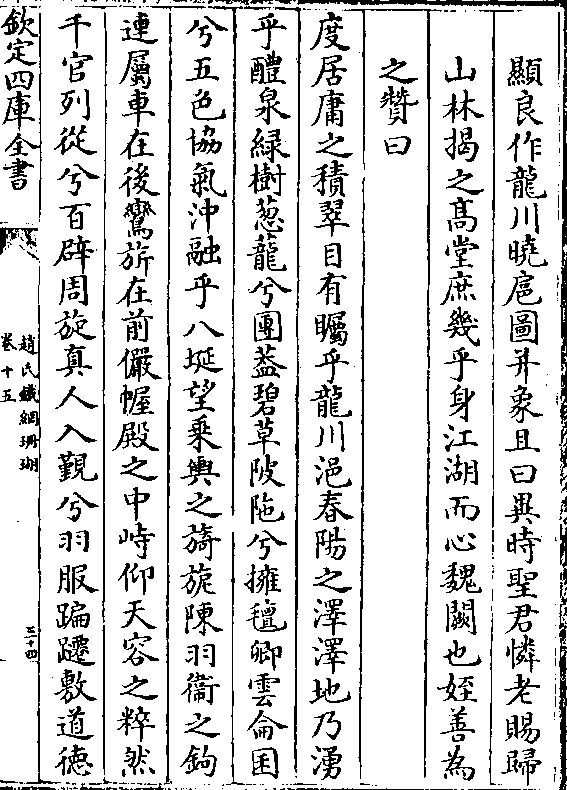 顯良作龍川曉扈圖并象且曰異時聖君憐老賜歸
山林揭之髙堂庶幾乎身江湖而心魏闕也姪善為
之贊曰
度居庸之積翠目有矚乎龍川浥春陽之澤澤地乃湧
乎醴泉緑樹葱蘢兮團葢碧草陂陁兮擁氊卿雲侖囷
兮五色協氣沖融乎八埏望乗輿之旖旎陳羽衞之鉤
連屬車在後鸞旂在前儼幄殿之中峙仰天容之粹然
千官列從兮百辟周旋真人入覲兮羽服蹁躚敷道德
欽定四庫全書
趙氏鐵網珊瑚
卷十五
三十四